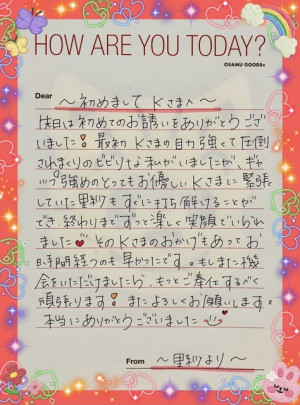 HOW ARE YOU TODAY?
OSAMU GOODS®
Dear
～初めまして Kさまへ～
本日は初めてのお誘いをありがとうござ
いました！最初 Kさまの目力強くて圧倒
されまくりのビビりな私がいましたが、ギャ
ップ強めのとってもお優しいKさまに緊張
していた里紗もすぐに打ち解けることが
でき、終わりまでずっと楽しく笑顔でいられ
ました そのKさまのおかげもあってお
時間経つのも早かったです。もしまた機
会をいただけましたら、もっとご奉仕するべく
頑張ります！またよろしくお願いします。
本当にありがとうございました
From
～里紗より～